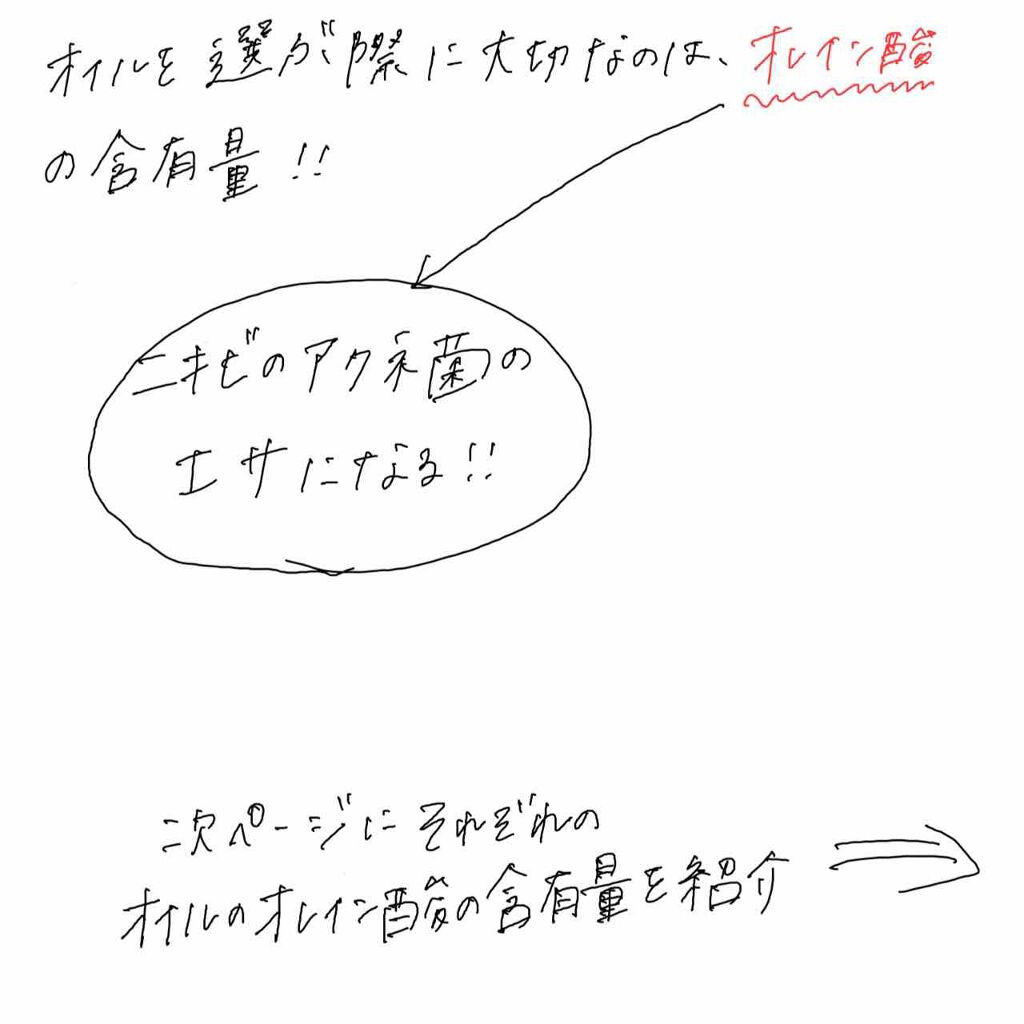 オイルを選ぶ際に大切なのは、オレイン酸
の含有量!!
ニキビのアクネ菌の
エサになる!!
次ページにそれぞれの
オイルのオレイン酸の含有量を紹介